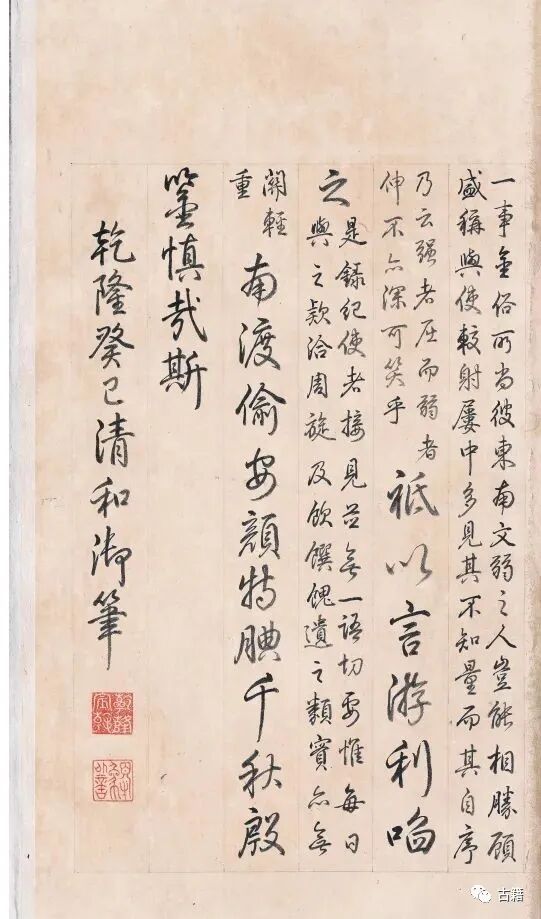 一事金俗所尚彼東南文弱之人豈能相勝顧
盛稱與使較射屢中多見其不知量而其自序
乃云强者屈而弱者
伸不亦深可笑乎
祗以言游利啗
之
是錄紀使者接見並無一語切要惟每日
與之欵洽周旋及飲饌餽遺之類實亦無
關輕
重
南渡偷安顏特腆千秋殷
鑒慎哉斯
乾隆癸巳清和御筆
乾隆宸翰
古籍